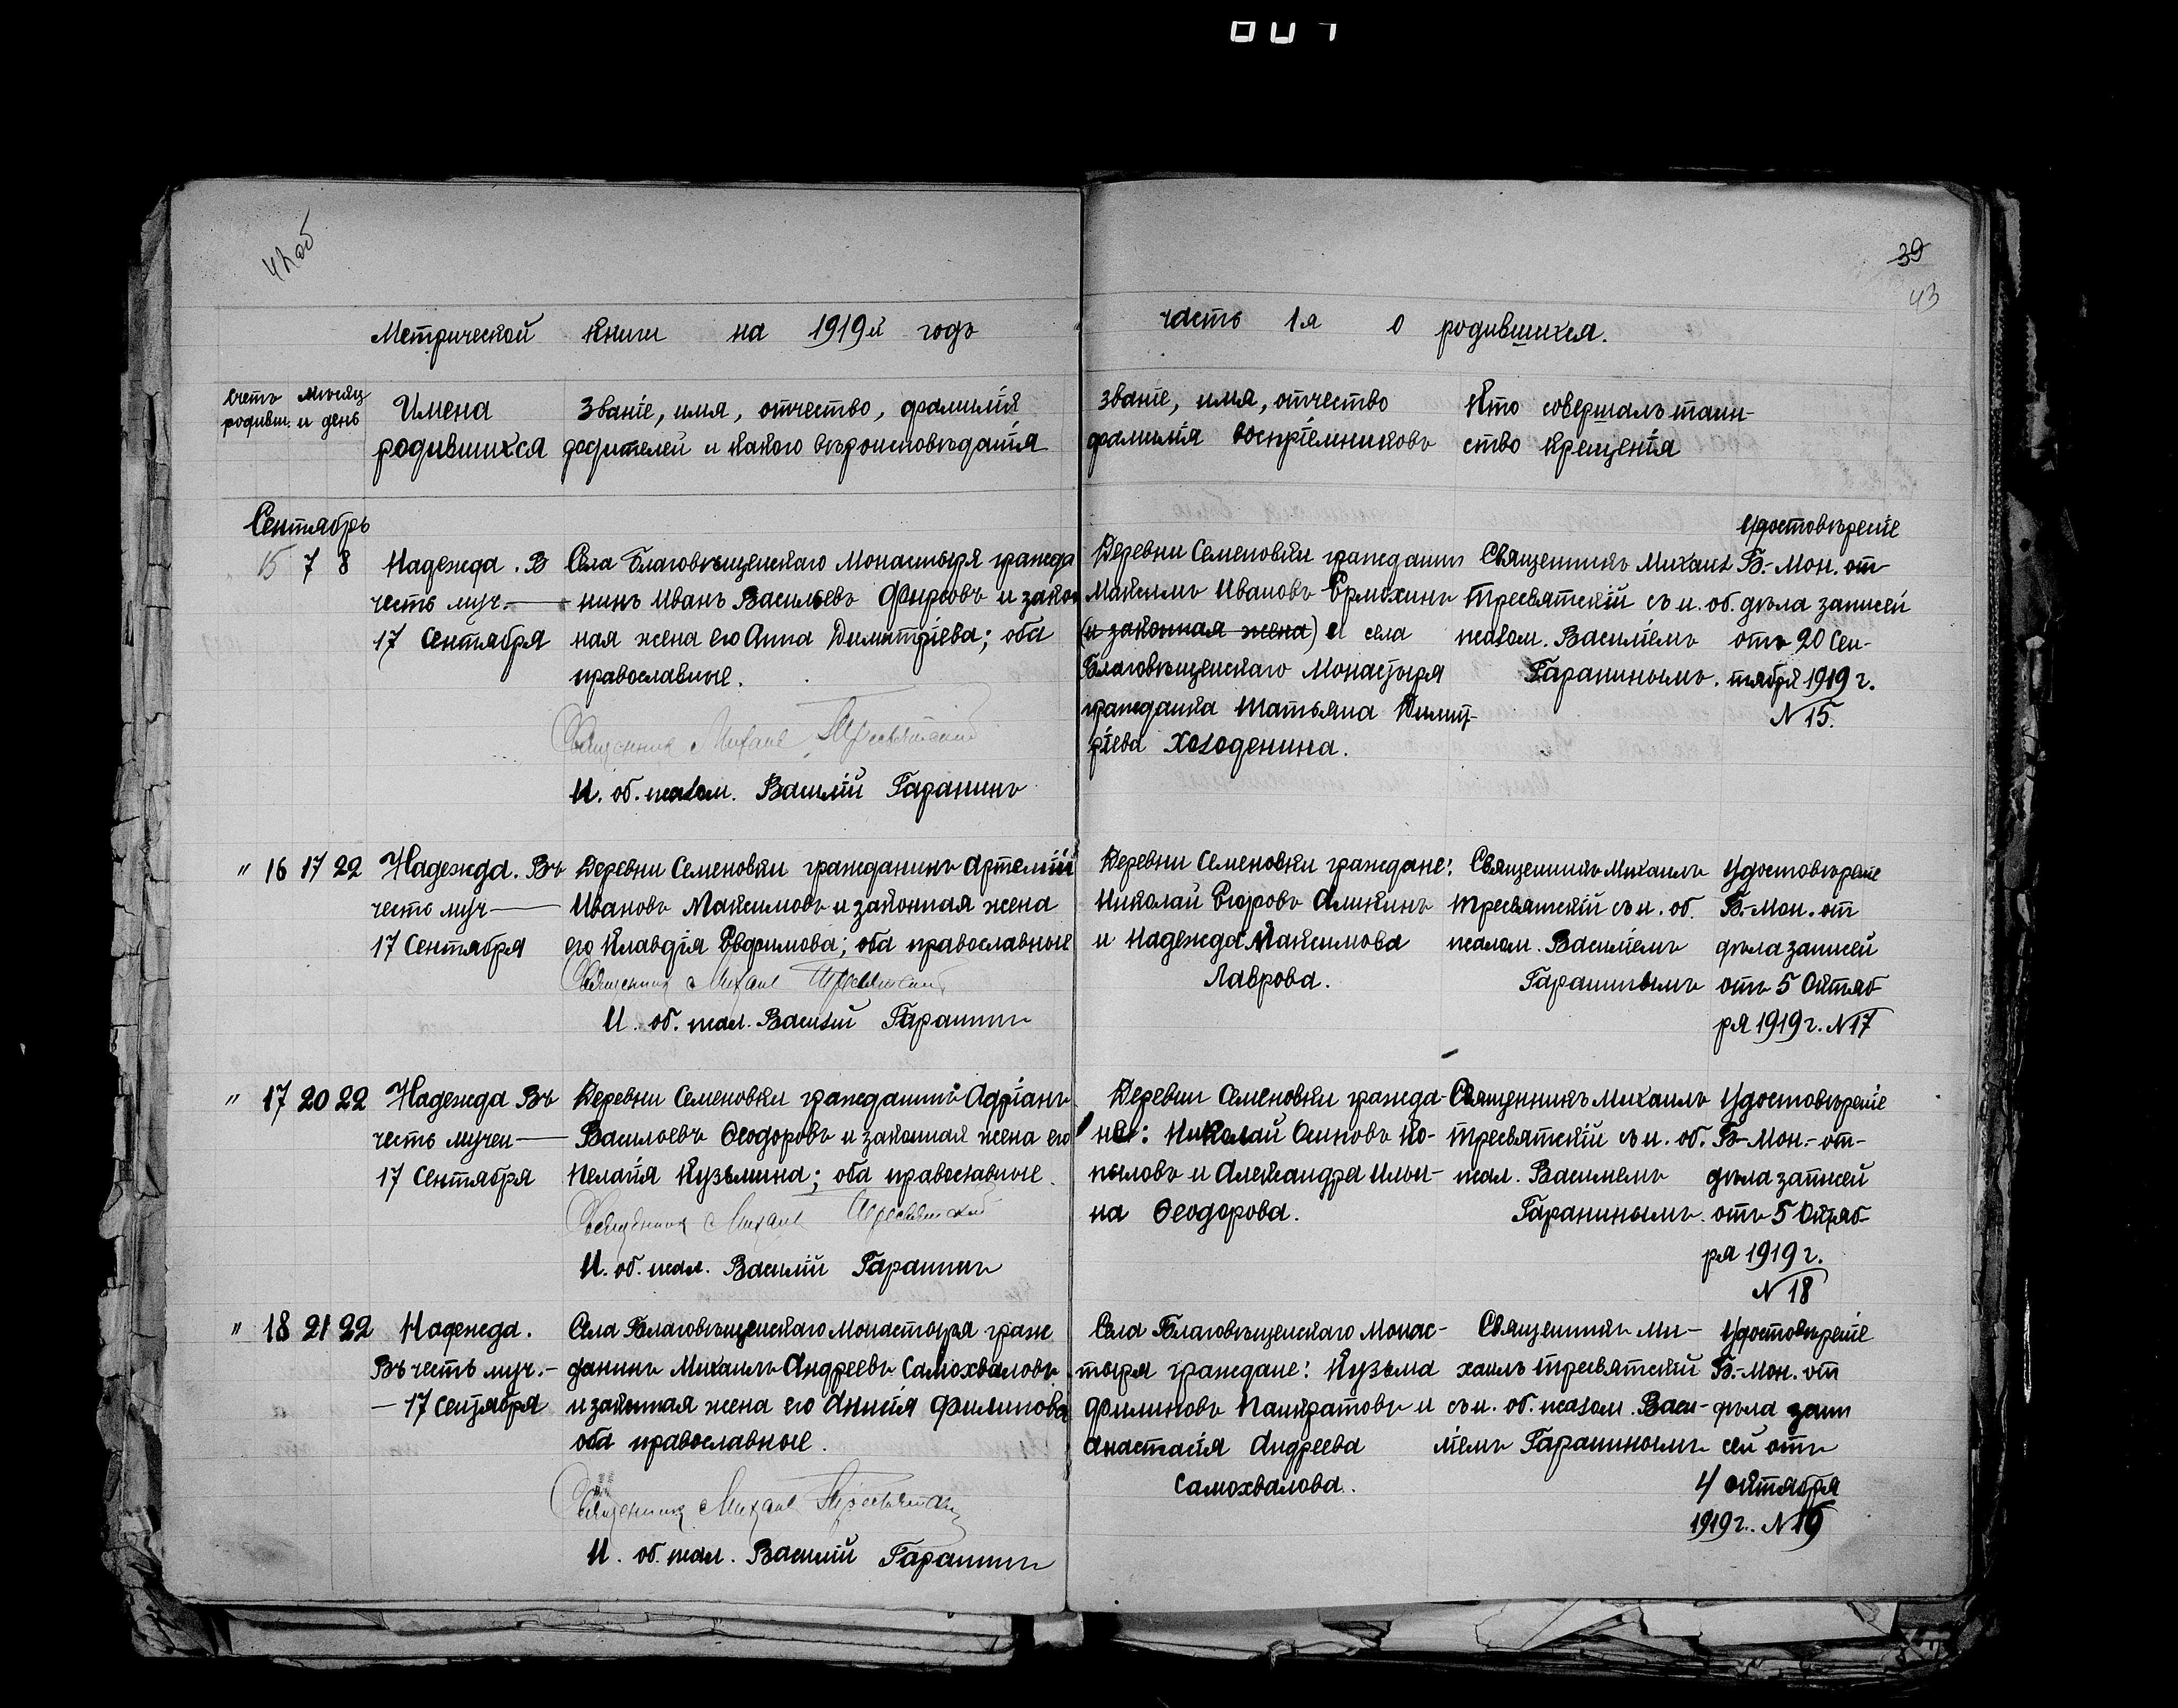 007
42об
39
43
Метрической книги на 1919й годъ
часть 1я о родившихся.
Счетъ родивш.
Мѣсяц и день
Имена
родившихся
Званіе, имя, отчество, фамилія
родителей и какого вѣроисповѣданія
званіе, имя, отчество
фамилія воспріемниковъ
Кто совершалъ таин-
ство крещенія
Сентябрь
15 7 8
Надежда. В
честь муч.—
17 Сентября
Села Благовѣщенскаго Монастыря гражда
нинъ Иванъ Васильевъ Фирсовъ и закон
ная жена его Анна Димитріева; оба
православные.
Священник Михаил Тресвятский
И. об. псалом. Василій Гаранинъ
Деревни Семеновки гражданин
Максимъ Ивановъ Ермохинъ
(и законная жена) и села
Благовѣщенскаго Монастыря
гражданка Татьяна Димит-
ріева Холоденина.
Священникъ Михаил
Тресвятскій съ и. об.
псалом. Василіемъ
Гаранинымъ.
Удостовѣреніе
Б.-Мон. от
дѣла записей
отъ 20 Сен-
тября 1919 г.
N 15.
" 16 17 22
Надежда. Въ
честь муч—
17 Сентября
Деревни Семеновки гражданинъ Артемій
Ивановъ Максимовъ и законная жена
его Клавдія Евфимова; оба православные
Священник Михаил Тресвятский
И. об. псал. Василій Гаранинъ
Деревни Семеновки граждане:
Николай Егоровъ Аликинъ
и Надежда Максимова
Лаврова.
Священникъ Михаилъ
Тресвятскій съ и. об.
псалом. Василіемъ
Гаранинымъ
Удостовѣреніе
Б.-Мон. от
дѣла записей
отъ 5 Октяб
ря 1919 г. N 17
" 17 20 22
Надежда Въ
честь мучен—
17 Сентября
Деревни Семеновки гражданинъ Адріанъ
Васильевъ Ѳеодоровъ и законная жена его
Пелагія Кузьмина; оба православные.
Священник Михаил Тресвятский
И. об. псал. Василій Гаранинъ
Деревни Семеновки гражда-
не: Николай Осиповъ Ко-
пыловъ и Александра Ильи-
на Ѳеодорова.
Священникъ Михаилъ
Тресвятскій съ и. об.
псал. Василіемъ
Гаранинымъ.
Удостовѣреніе
Б-Мон.-от-
дѣла записей
отъ 5 Октяб-
ря 1919 г.
N 18
" 18 21 22
Надежда.
Въ честь муч.-
— 17 сентября
Села Благовѣщенскаго Монастыря граж
данинъ Михаилъ Андреевъ Самохваловъ
и законная жена его Анисія Филипова
оба православные.
Священник Михаил Тресвятский
И. об. псал. Василій Гаранинъ
Села Благовѣщенскаго Монас-
тыря граждане: Кузьма
Филиповъ Панкратовъ и
Анастасія Андреева
Самохвалова.
Священникъ Ми-
хаилъ Тресвятскій
съ и. об. псалом. Васи-
ліемъ Гаранинымъ
Удостовѣреніе
Б.-Мон. от
дѣла запи
сей отъ
4 октября
1919 г. N 19